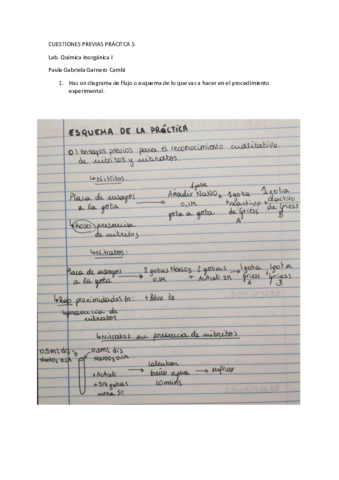 CUESTIONES PREVIAS PRÁCITCA 5
Lab. Química Inorgánica I
Paula Gabriela Garnero Cambi
1. Haz un diagrama de flujo o esquema de lo que vas a hacer en el procedimiento
experimental.
ESQUEMA DE LA PRÁCTICA
0.1 Ensayos previos para el reconocimiento cualitativo
de nitritos y nitratos.
↳Nitritos
Placa de ensayos
a la gota
→ 1gota Añadir NaNO2 0,1M gota a gota
→ 1gota +reactivo de Griess A
1 gota +reactivo de Griess B
↳Rosa: presencia
de nitritos
↳Nitratos:
Placa de ensayos
a la gota
→ 2 gotas NaNO3 0,1M
2 gotas + AcLab 2M
→ 1gota Griess A
+ 1gota Griess B
↳Rojo proximidades Zn:
presencia de
nitratos
↳Nitratos en presencia de nitritos
0,5ml dis
NaNO2 0,1M
0,5ml dis
NaNO3 0,1M
+
+3/4 gotas
urea
→ calentar baño agua 10 mins
→ enfriar